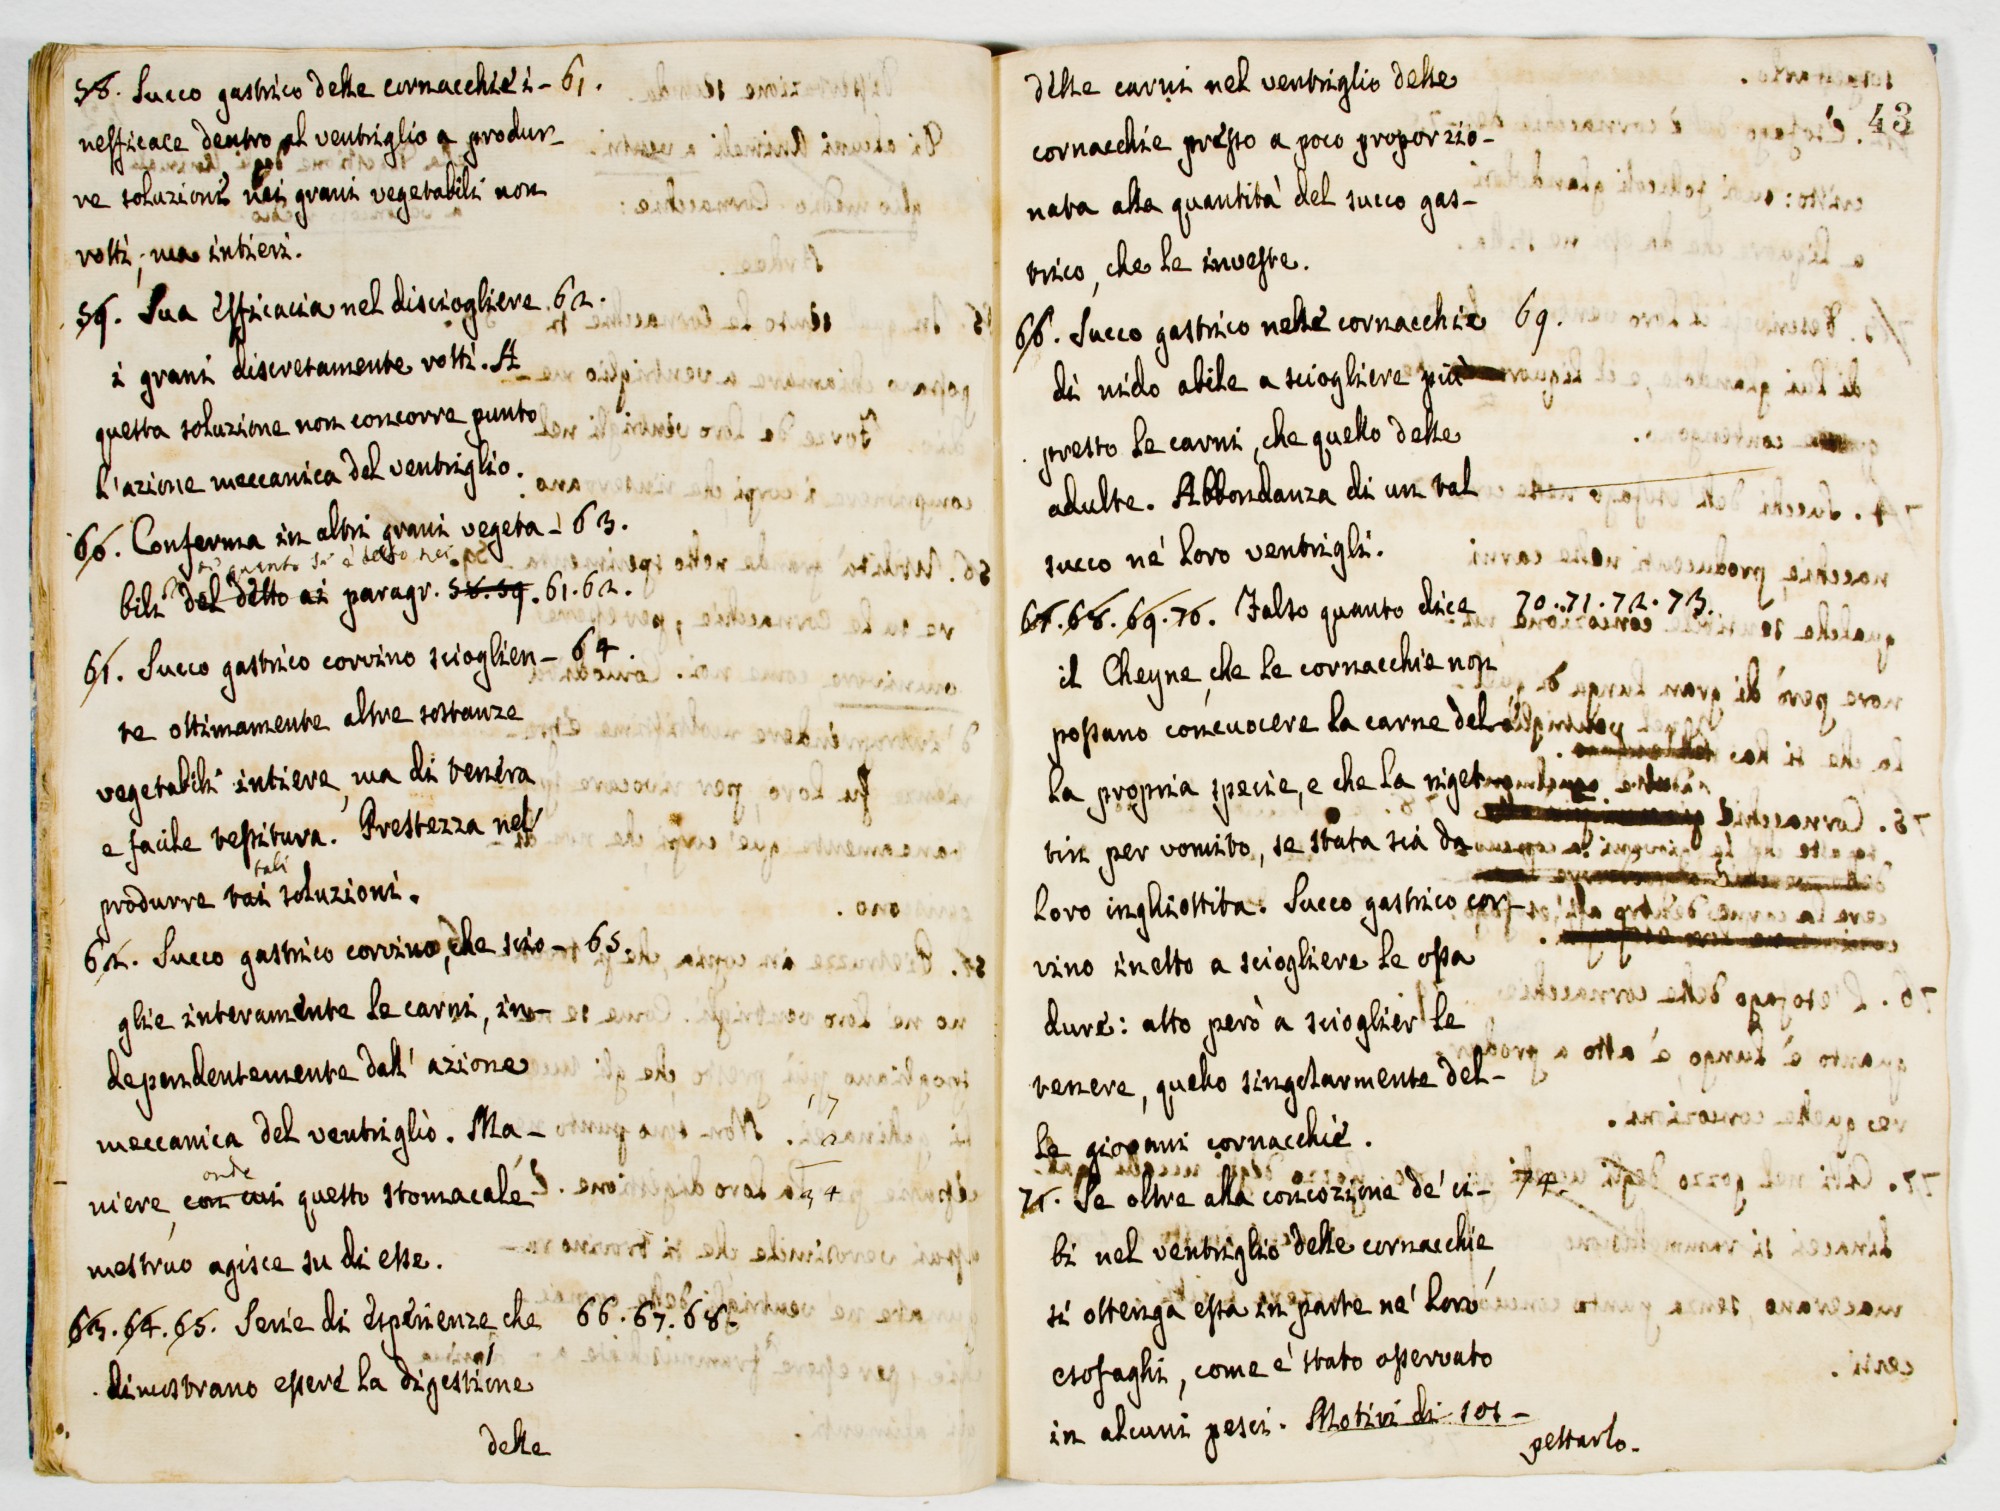 58. Succo gastrico delle cornacchie i- 61.
nefficace dentro al ventriglio a produr-
re soluzioni nei grani vegetabili non
rotti, ma intieri.
59. Sua efficacia nel disciogliere 62.
i grani discretamente rotti. A
questa soluzione non concorre punto
l'azione meccanica del ventriglio.
60. Conferma in altri grani vegeta- 63.
di quanto si è detto nei
bili del detto ai paragr. 58. 59. 61. 62.
61. Succo gastrico corvino scioglien- 64.
te ottimamente altre sostanze
vegetabili intiere, ma di tenera
e facile tessitura. Prestezza nel
tali
produrre tai soluzioni.
62. Succo gastrico corvino, che scio- 65.
glie interamente le carni, in-
dependentemente dall' azione
meccanica del ventriglio. Ma-
onde
niere, con cui questo stomacale
mestruo agisce su di esse.
63. 64. 65. Serie di esperienze, che 66. 67. 68.
dimostrano essere la digestione
delle
43
delle carni nel ventriglio delle
cornacchie presso a poco proporzio-
nata alla quantità del succo gas-
trico, che le investe.
66. Succo gastrico nelle cornacchie 69.
di nido abile a sciogliere più
presto le carni, che quello delle
adulte. Abbondanza di un tal
succo ne' loro ventrigli.
67. 68. 69. 70. Falso quanto dice 70. 71. 72. 73.
il Cheyne, che le cornacchie non
possano concuocere la carne del-
la propria specie, e che la riget-
tin per vomito, se stata sia da
loro inghiottita. Succo gastrico cor-
vino inetto a sciogliere le ossa
dure: atto però a scioglier le
tenere, quello singolarmente del-
le giovani cornacchie.
71. Se oltre alla concozione de' ci- 74.
bi nel ventriglio delle cornacchie,
si ottenga essa in parte ne' loro
esofaghi, come è stato osservato
in alcuni pesci. Motivi di sos-
pettarlo.